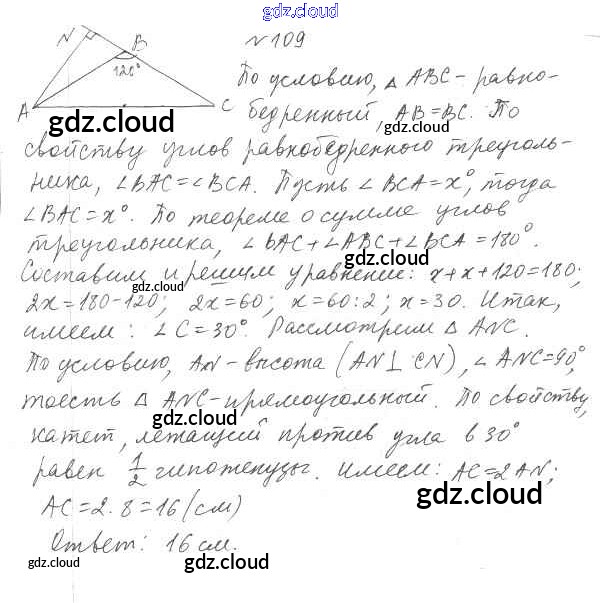 gdz.cloud
N
B
120°
A
C
№109
По условию, △ ABC - равно-
бедренный AB=BC. По
gdz.cloud
gdz.cloud
свойству углов равнобедренного треуголь-
ника, ∠BAC=∠BCA. Пусть ∠BCA=x°, тогда
∠BAC=x°. По теореме о сумме углов
треугольника, ∠BAC+∠ABC+∠BCA=180°.
gdz.cloud
Составим и решим уравнение: x+x+120=180;
gdz.cloud
2x=180-120; 2x=60; x=60:2; x=30. Итак,
имеем: ∠C=30°. Рассмотрим △ ANC.
gdz.cloud
По условию, AN-высота (AN⊥CN), ∠ANC=90°,
тоесть △ ANC-прямоугольный. По свойству,
gdz.cloud
катет, лежащий против угла в 30°
равен 1/2 гипотенузы. Имеем: AC=2AN;
gdz.cloud
AC=2·8=16(см)
Ответ: 16см.
gdz.cloud
gdz.cloud
gdz.cloud